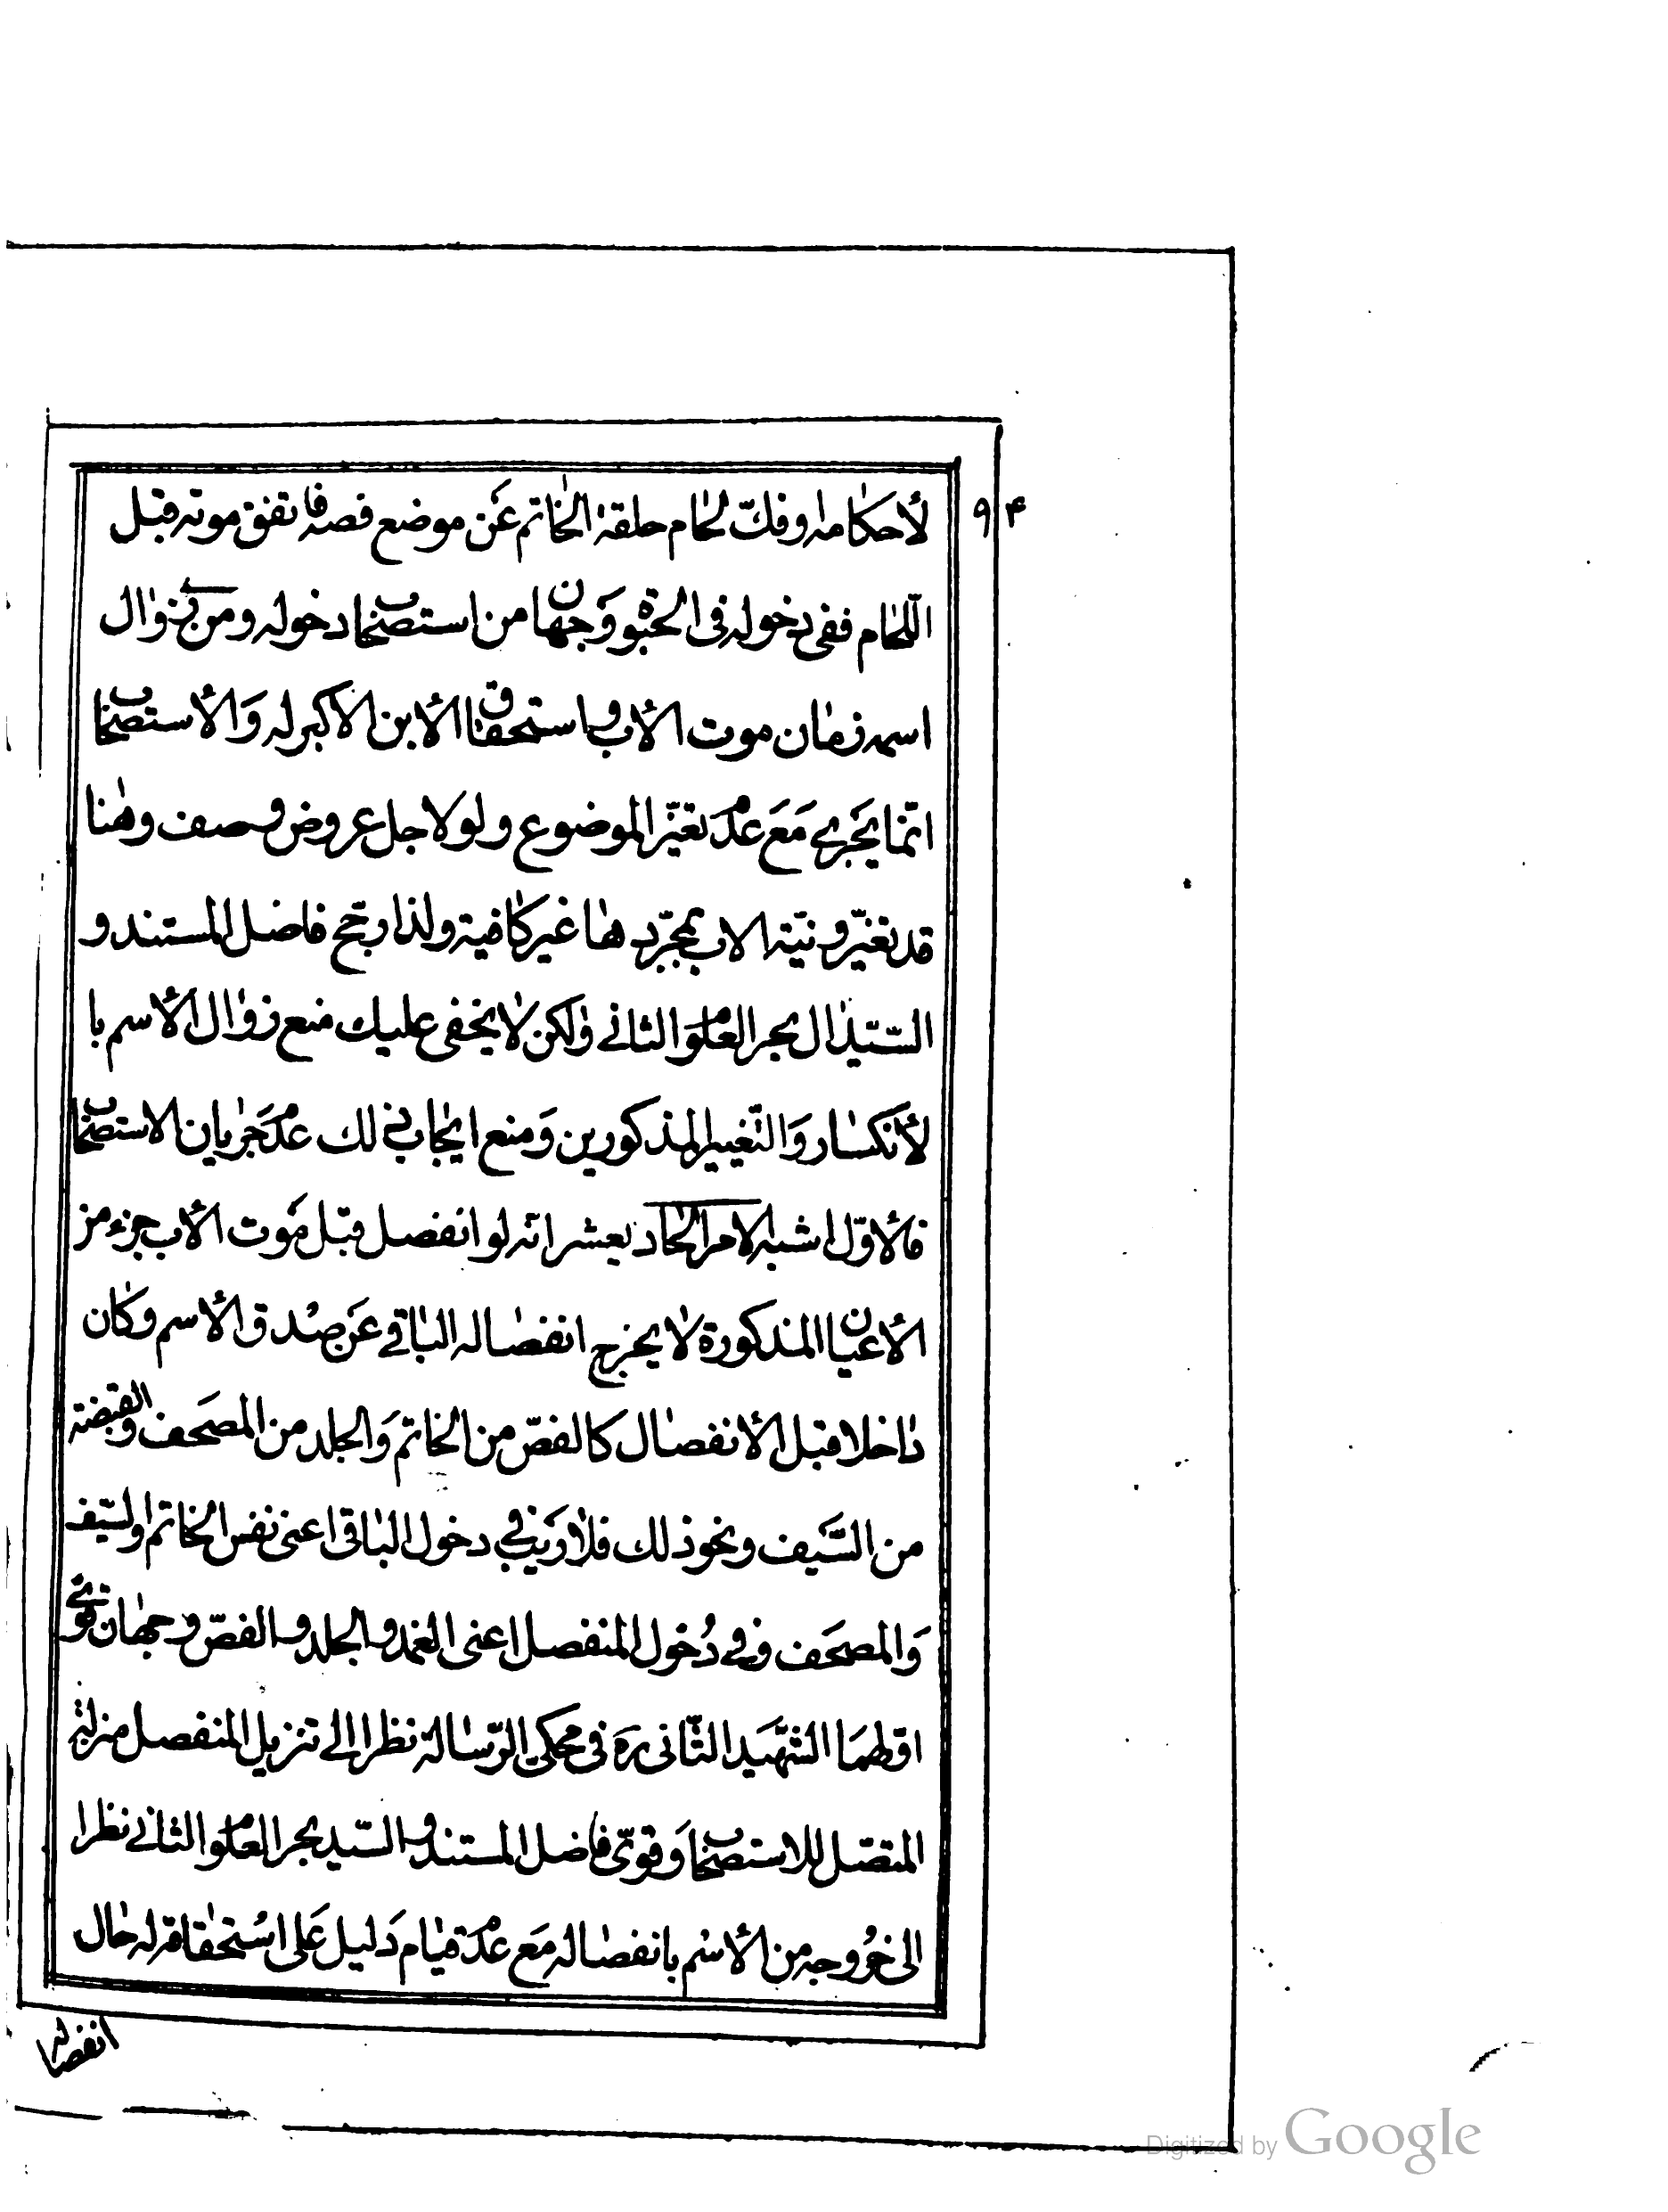 ۹۴
لأحكامه او فك لحام حلقة الخاتم عن موضع فصه فاتفق موته قبل
اللحام ففى دخوله فى الحبوة وجهان من استصحاب دخوله ومن زوال
اسمه زمان موت الأب واستحقاق الأبن الأكبر له والأستصحاب
انما يجرى مع عدم تغير الموضوع ولو لاجل عروض وصف وهنا
قد تغير ونية الاب بمجردها غير كافية ولذا رجح فاضل المستند و
السيد ال بحر العلوم الثاني ولكن لا يخفى عليك منع زوال الأسم با
لأنكسار والتغيير المذكورين ومنع ايجاب ذلك عدم جريان الاستصحاب
فالأول اشبه الامر الحاد يعشر انه لو انفصل قبل موت الأب جزء من
الأعيان المذكورة لا يخرج انفصاله الباقي عن صدق الأسم وكان
داخلا قبل الأنفصال كالفص من الخاتم والجلد من المصحف والقبضة
من السيف ونحو ذلك فلا ريب في دخول الباقى اعنى نفس الخاتم والسيف
والمصحف وفي دخول المنفصل اعنى الغمد والجلد والفص وجهان قوى
اولهما الشهيد الثانى ره فى محكى الرسالة نظرا الى تنزيل المنفصل منزلة
المتصل للاستصحاب وقوى فاضل المستند والسيد بحر العلوم الثاني نظرا
الى خروجه من الأسم بانفصاله مع عدم قيام دليل على استحقاقه له حال
انفصاله
Digitized by Google